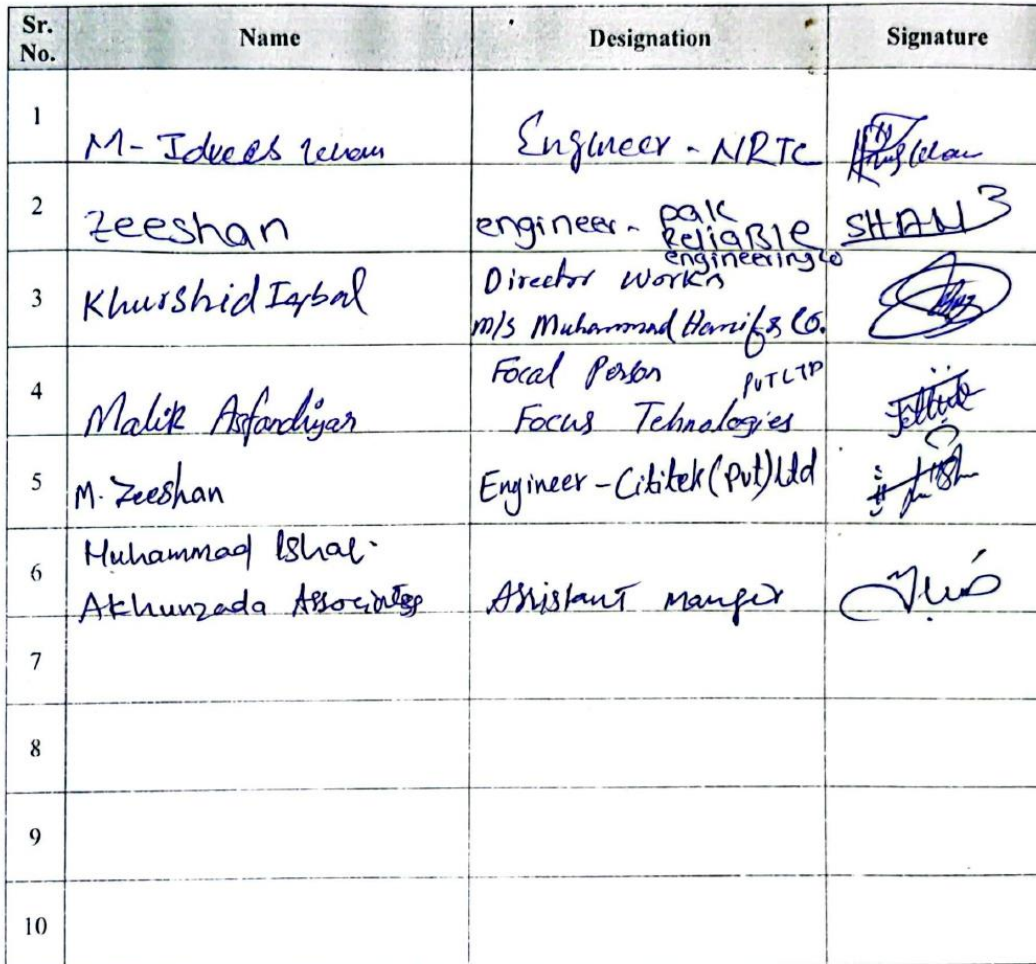 Sr. No. Name Designation Signature
1 M- Idrees Khan Engineer - NRTC
2 Zeeshan engineer - pak ReliaBle engineering co SHAN
3 Khurshid Iqbal Director Works
m/s Muhammad Hanif & Co.
4 Malik Asfandiyar Focal Person
Focus Tehnologies PVT LTD
5 M. Zeeshan Engineer - Cititek (Pvt) Ltd
6 Muhammad Ishaq.
Akhunzada Associates Assistant manger
7
8
9
10